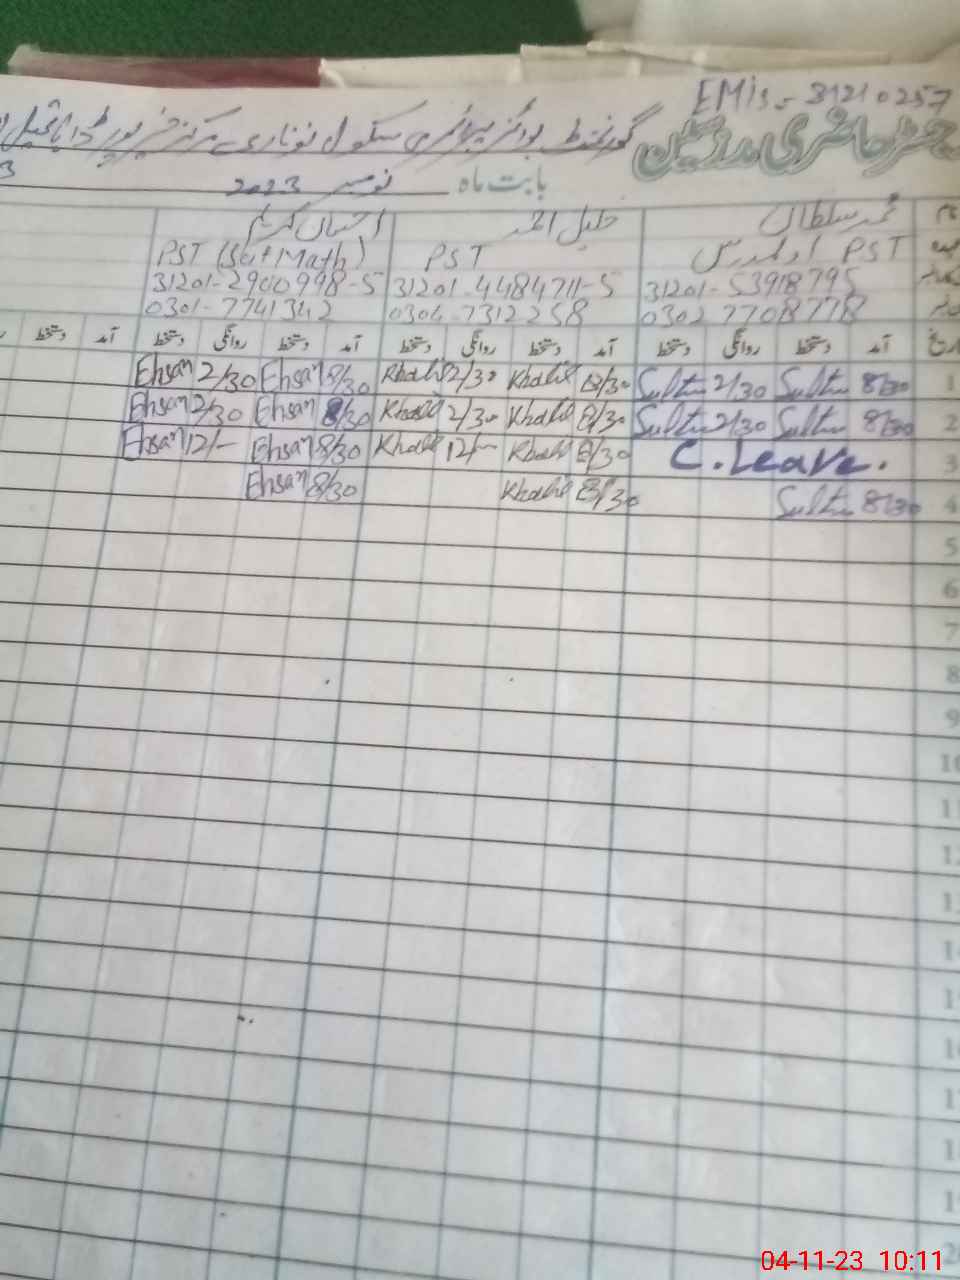 EMis - 31210257
رجسٹر حاضری مدرسین
گورنمنٹ بوائز پرائمری سکول نوناری مرکز خیر پور
بابت ماہ نومبر 2023
نام محمد سلطان خلیل احمد احسان کریم
PST اول مدرس PST PST (Sci + Math)
31201-53918795 31201-4484711-5 31201-2900998-5
0302 7708778 0304-7312258 0301-7741342
تاریخ آمد دستخط روانگی دستخط آمد دستخط روانگی دستخط آمد دستخط روانگی دستخط آمد دستخط
1 8/30 Sultan 2/30 Sultan 8/30 Khalil 2/30 Khalil 8/30 Ehsan 2/30 Ehsan
2 8/30 Sultan 2/30 Sultan 8/30 Khalil 2/30 Khalil 8/30 Ehsan 2/30 Ehsan
3 C. Leave. 8/30 Khalil 12/- Khalil 8/30 Ehsan 12/- Ehsan
4 8/30 Sultan 8/30 Khalil 8/30 Ehsan
5
6
7
8
9
10
11
12
13
14
15
16
17
18
19
20
04-11-23 10:11